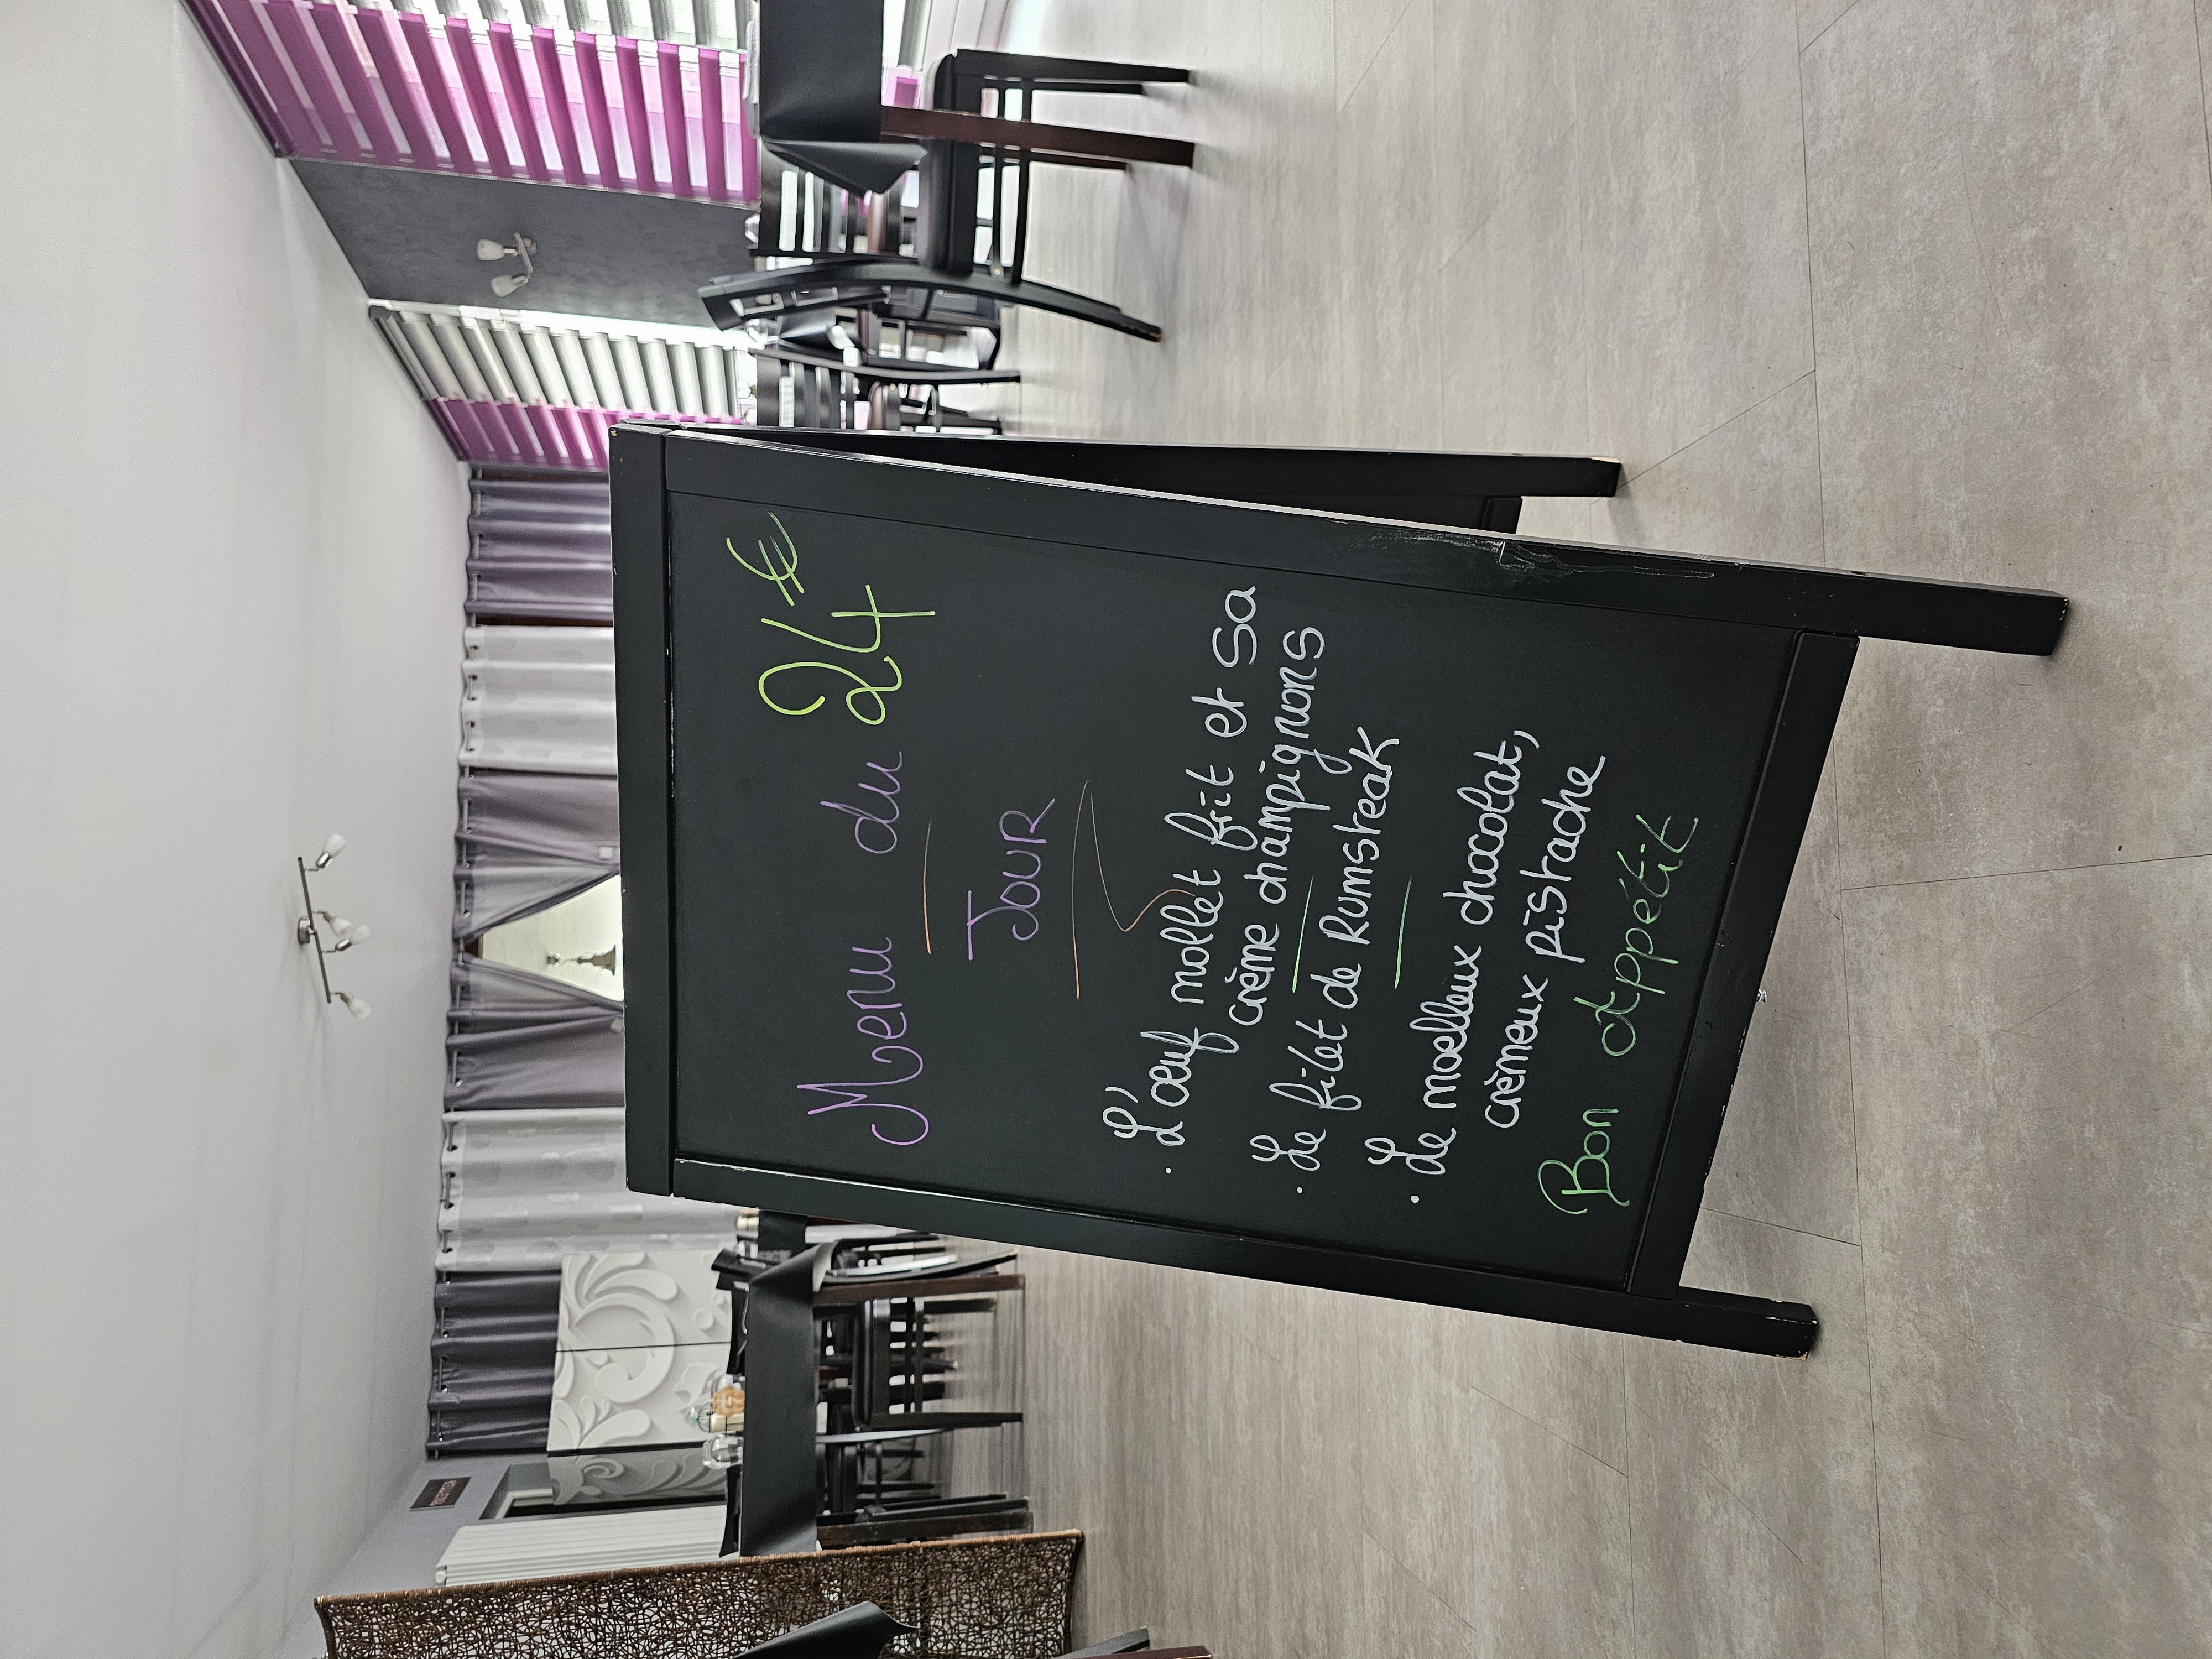 Menu du 24€
Jour
. L'œuf mollet frit et sa
crème champignons
. Le filet de Rumsteak
. Le moelleux chocolat,
crèmeux pistache
Bon Appétit